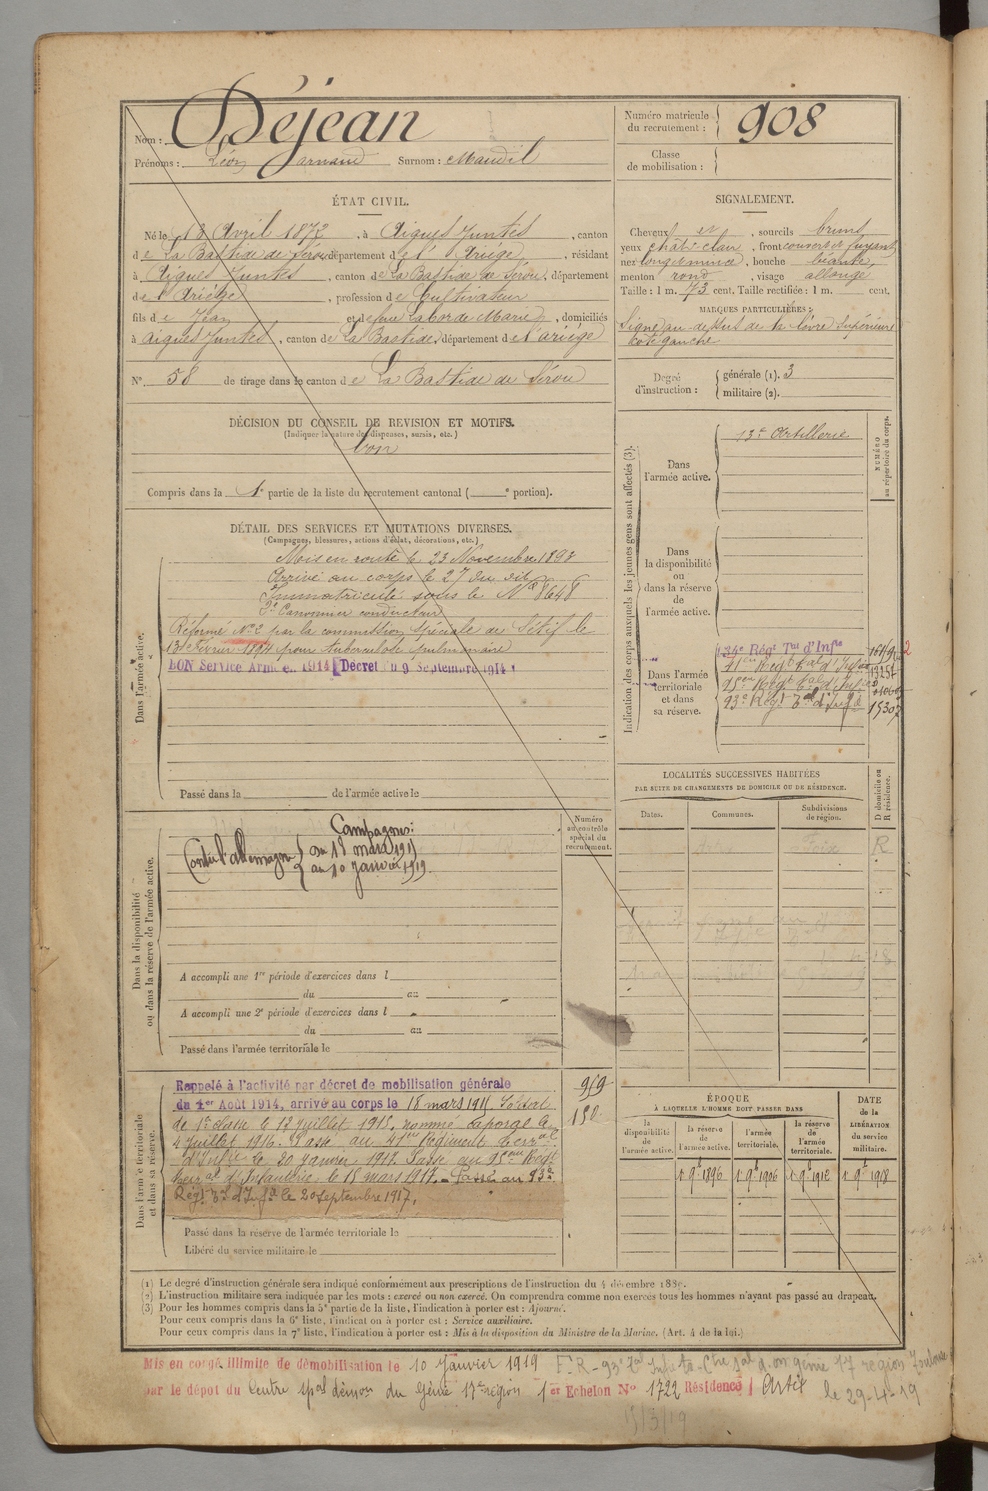 Nom : Déjean
Prénoms : Léon Armand Surnom : Maudil
Numéro matricule du recrutement : 908
Classe de mobilisation :
ÉTAT CIVIL.
Né le 13 Avril 1872, à Aigues Juntes, canton
de La Bastide de Sérou, département de l'Ariége, résidant
à Aigues Juntes, canton de La Bastide de Sérou, département
de l'Ariége, profession de Cultivateur
fils de Jean et de feue Laborde Marie, domiciliés
à Aigues Juntes, canton de La Bastide, département de l'ariége
N° 58 de tirage dans le canton de La Bastide de Sérou
SIGNALEMENT.
Cheveux et, sourcils bruns
yeux chât. clair, front couvert et fuyant,
nez long et mince, bouche béante,
menton rond, visage allongé
Taille : 1 m. 73 cent. Taille rectifiée : 1 m. cent.
MARQUES PARTICULIÈRES :
Signe au dessus de la lèvre supérieure
côté gauche
Degré d'instruction : générale (1). 3
militaire (2).
DÉCISION DU CONSEIL DE REVISION ET MOTIFS.
(Indiquer la nature des dispenses, sursis, etc.)
bon
Compris dans la 1e partie de la liste du recrutement cantonal ( e portion).
DÉTAIL DES SERVICES ET MUTATIONS DIVERSES.
(Campagnes, blessures, actions d'éclat, décorations, etc.)
Dans l'armée active.
Mis en route le 23 Novembre 1893
Arrivé au corps le 27 du dit
Immatriculé sous le N° 8648
2e Canonnier conducteur
Réformé N° 2 par la commission spéciale de Sétif le
13 Février 1894 pour tuberculose pulmonaire
BON Service Armé e. 1914 Décret du 9 Septembre 1914
Passé dans la de l'armée active le
Indication des corps auxquels les jeunes gens sont affectés (3).
NUMÉRO au répertoire du corps.
Dans l'armée active.
13e Artillerie
Dans la disponibilité ou dans la réserve de l'armée active.
Dans l'armée territoriale et dans sa réserve.
134e Régt Tal d'Infie
41eme Régt Tal d'Infie 13257
95eme Régt Tal d'Infie
93e Régt Tal d'Infie 15307
LOCALITÉS SUCCESSIVES HABITÉES
PAR SUITE DE CHANGEMENTS DE DOMICILE OU DE RÉSIDENCE.
Dates. Communes. Subdivisions de région. D domicile ou R résidence.
Foix R
Dans la disponibilité ou dans la réserve de l'armée active.
Numéro au contrôle spécial du recrutement.
Campagnes :
Contre l'allemagne du 18 mars 1915
au 10 janvier 1919.
A accompli une 1re période d'exercices dans l
du au
A accompli une 2e période d'exercices dans l
du au
Passé dans l'armée territoriale le
Dans l'armée territoriale et dans sa réserve.
Rappelé à l'activité par décret de mobilisation générale
du 1er Août 1914, arrivé au corps le 18 mars 1915 Soldat
de 1e classe le 13 juillet 1915, nommé caporal le
4 juillet 1916. Passé au 41eme Régiment terral
d'Infie le 20 janvier 1917. Passé au 95eme Régt
terral d'Infanterie le 15 mars 1917. - Passé au 93e
Régt Tal d'Infie le 20 septembre 1917.
Passé dans la réserve de l'armée territoriale le
Libéré du service militaire le
ÉPOQUE
À LAQUELLE L'HOMME DOIT PASSER DANS
la disponibilité de l'armée active.
la réserve de l'armée active.
l'armée territoriale.
la réserve de l'armée territoriale.
DATE de la LIBÉRATION du service militaire.
1 9bre 1896 1 9bre 1906 1 9bre 1912 1 9bre 1918
(1) Le degré d'instruction générale sera indiqué conformément aux prescriptions de l'instruction du 4 décembre 1889.
(2) L'instruction militaire sera indiquée par les mots : exercé ou non exercé. On comprendra comme non exercés tous les hommes n'ayant pas passé au drapeau.
(3) Pour les hommes compris dans la 5e partie de la liste, l'indication à porter est : Ajourné.
Pour ceux compris dans la 6e liste, l'indication à porter est : Service auxiliaire.
Pour ceux compris dans la 7e liste, l'indication à porter est : Mis à la disposition du Ministre de la Marine. (Art. 4 de la loi.)
Mis en congé illimité de démobilisation le 10 Janvier 1919
par le dépot du Centre spal démon du Génie 17e région 1er Echelon N° 1722 Résidence Artix
le 29-4-19
15/3/19